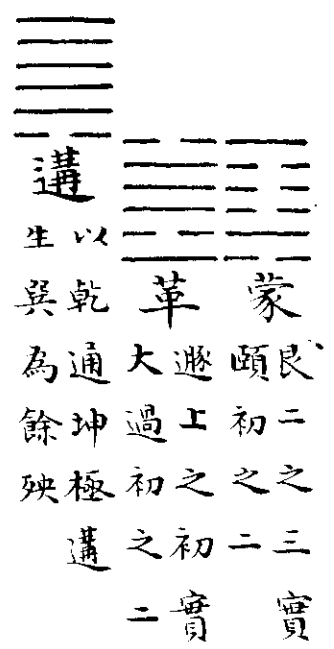 蒙
艮二之三實
頤初之二
革
遯上之初實
大過初之二
遘
以乾通坤極遘
生巽為餘殃